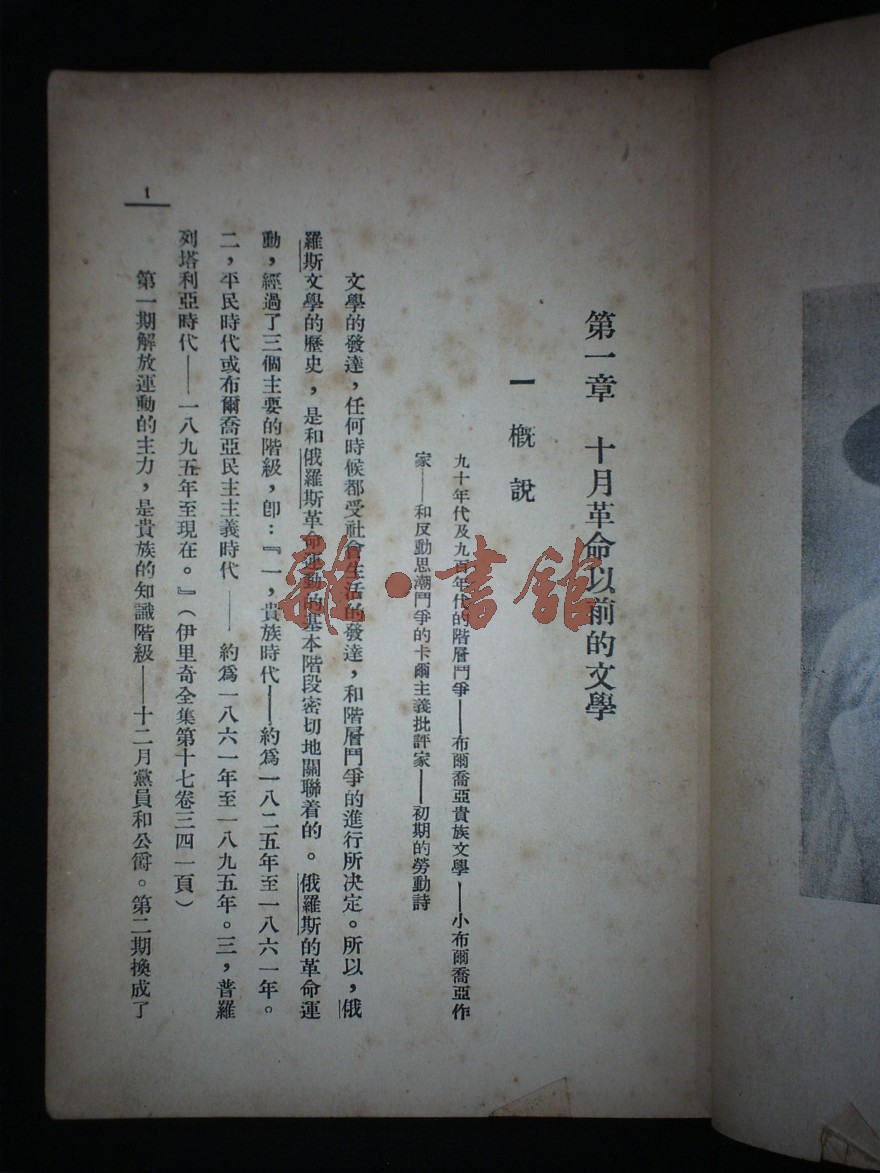 第一章　十月革命以前的文學
一　概說
九十年代及九百年代的階層鬥爭——布爾喬亞貴族文學——小布爾喬亞作
家——和反動思潮鬥爭的卡爾主義批評家——初期的勞動詩
文學的發達，任何時候都受社會生活的發達，和階層鬥爭的進行所決定。所以，俄
羅斯文學的歷史，是和俄羅斯革命運動的基本階段密切地關聯着的。俄羅斯的革命運
動，經過了三個主要的階級，卽：『一，貴族時代——約爲一八二五年至一八六一年。
二，平民時代或布爾喬亞民主主義時代——約爲一八六一年至一八九五年。三，普羅
列塔利亞時代——一八九五年至現在。』（伊里奇全集第十七卷三四一頁）
第一期解放運動的主力，是貴族的知識階級——十二月黨員和公爵。第二期換成了
1
雜·書館